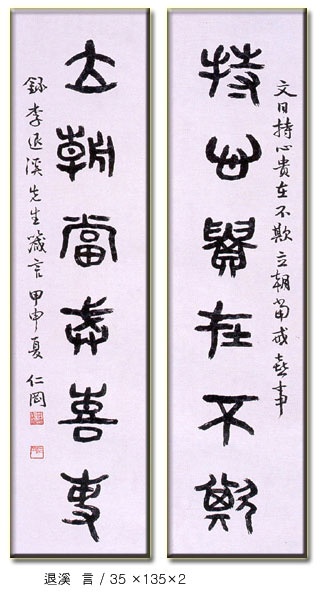 文曰持心貴在不欺立朝當戒喜事
持心貴在不欺
立朝當戒喜事
錄李退溪先生箴言 甲申夏 仁岡
退溪 言 / 35 ×135×2